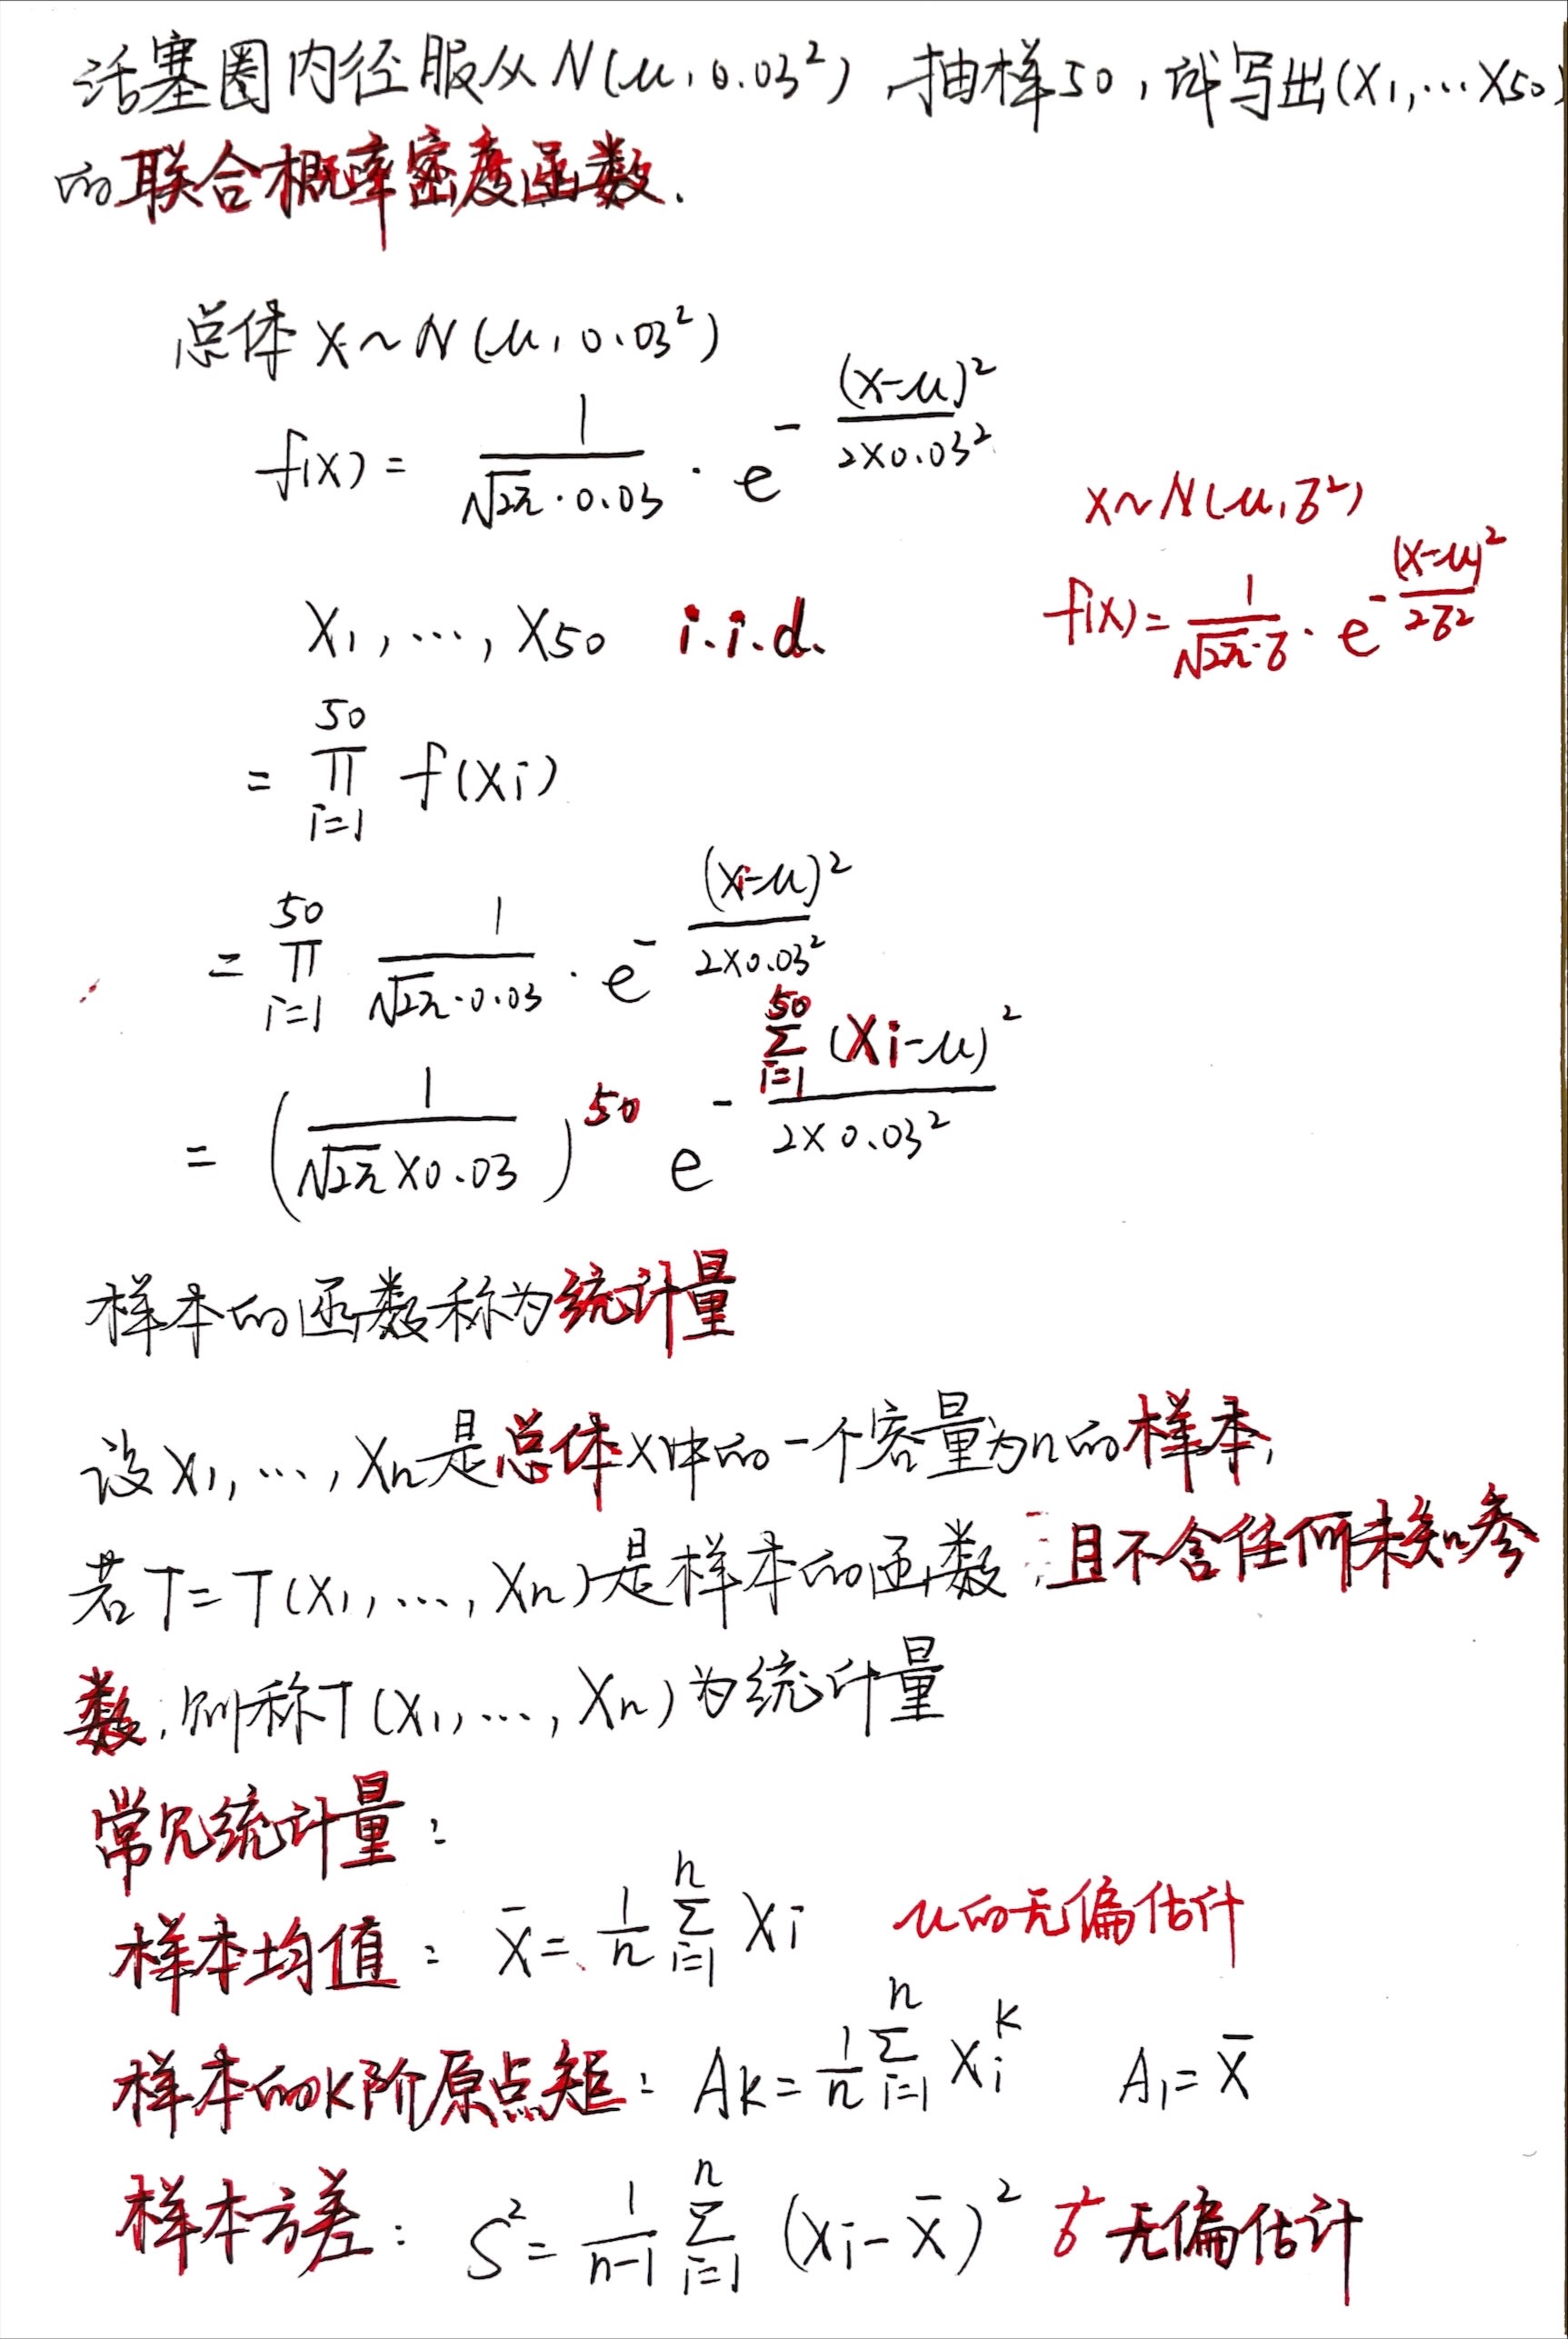 活塞圈内径服从N(μ,0.03²),抽样50,试写出(X₁,…X₅₀)
的联合概率密度函数.
总体 X~N(μ,0.03²)
f(x)= 1/(√2π·0.03) · e^(-(x-μ)²/(2×0.03²))
X~N(μ,σ²)
f(x)= 1/(√2π·σ) · e^(-(x-μ)²/(2σ²))
X₁,…,X₅₀ i.i.d.
= ∏_{i=1}^{50} f(xi)
= ∏_{i=1}^{50} 1/(√2π·0.03) · e^(-(xi-μ)²/(2×0.03²))
= (1/(√2π×0.03))^50 e^(-∑_{i=1}^{50}(xi-μ)²/(2×0.03²))
样本的函数称为统计量
设X₁,…,Xn是总体X中的一个容量为n的样本,
若T=T(X₁,…,Xn)是样本的函数,且不含任何未知参
数,则称T(X₁,…,Xn)为统计量
常见统计量:
样本均值: X̄= 1/n ∑_{i=1}^{n} Xi μ的无偏估计
样本的K阶原点矩: AK= 1/n ∑_{i=1}^{n} Xi^K A₁=X̄
样本方差: S²= 1/(n-1) ∑_{i=1}^{n} (Xi-X̄)² σ²无偏估计